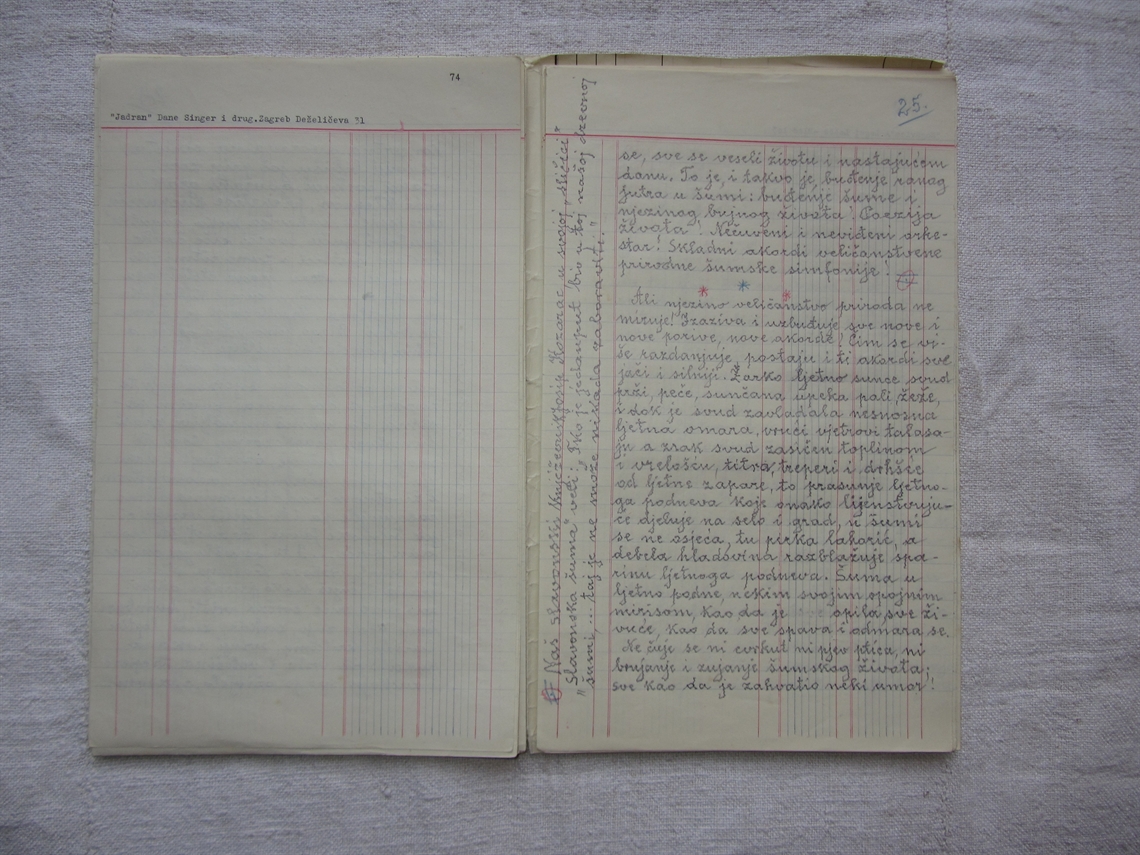 74
"Jadran" Dane Singer i drug.Zagreb Deželićeva 31
25.
Naš slavonski književnik Josip Kozarac u svojoj „sličici"
„Slavonska šuma" veli: „Tko je jedamput bio u toj našoj drevnoj
„šumi, .. taj je ne može nikada zaboraviti."
se, sve se veseli životu i nastajućem
danu. To je, i takvo je buđenje ranog
jutra u šumi: buđenje šume i
njezinog bujnog života! Poezija
života! Nečuveni i neviđeni orke-
star! Skladni akordi veličanstvene
prirodne šumske simfonije!
* * *
Ali njezino veličanstvo priroda ne
miruje! Izaziva i uzbuđuje sve nove i
nove porive, nove akorde! Čim se vi-
še razdanjuje, postaju i ti akordi sve
jači i silniji. Žarko ljetno sunce svud
prži, peče, sunčana upeka pali, žeže,
i dok je svud zavladala nesnosna
ljetna omara, vrući vjetrovi talasa-
ju a zrak svud zasićen toplinom
i vrelošću, titra, treperi i dršće
od ljetne zapare, to prasunje ljetno-
ga podneva koje onako lijenstvuju-
će djeluje na selo i grad, u šumi
se ne osjeća, tu pirka lahorić, a
debela hladovina razblažuje spa-
rinu ljetnoga podneva. Šuma u
ljetno podne, nekim svojim opojnim
mirisom, kao da je opila, sve ži-
vuće, kao da sve spava i odmara se.
Ne čuje se ni cvrkut ni pjev ptica, ni
brujanje i zujanje šumskog života;
sve kao da je zahvatio neki umor!